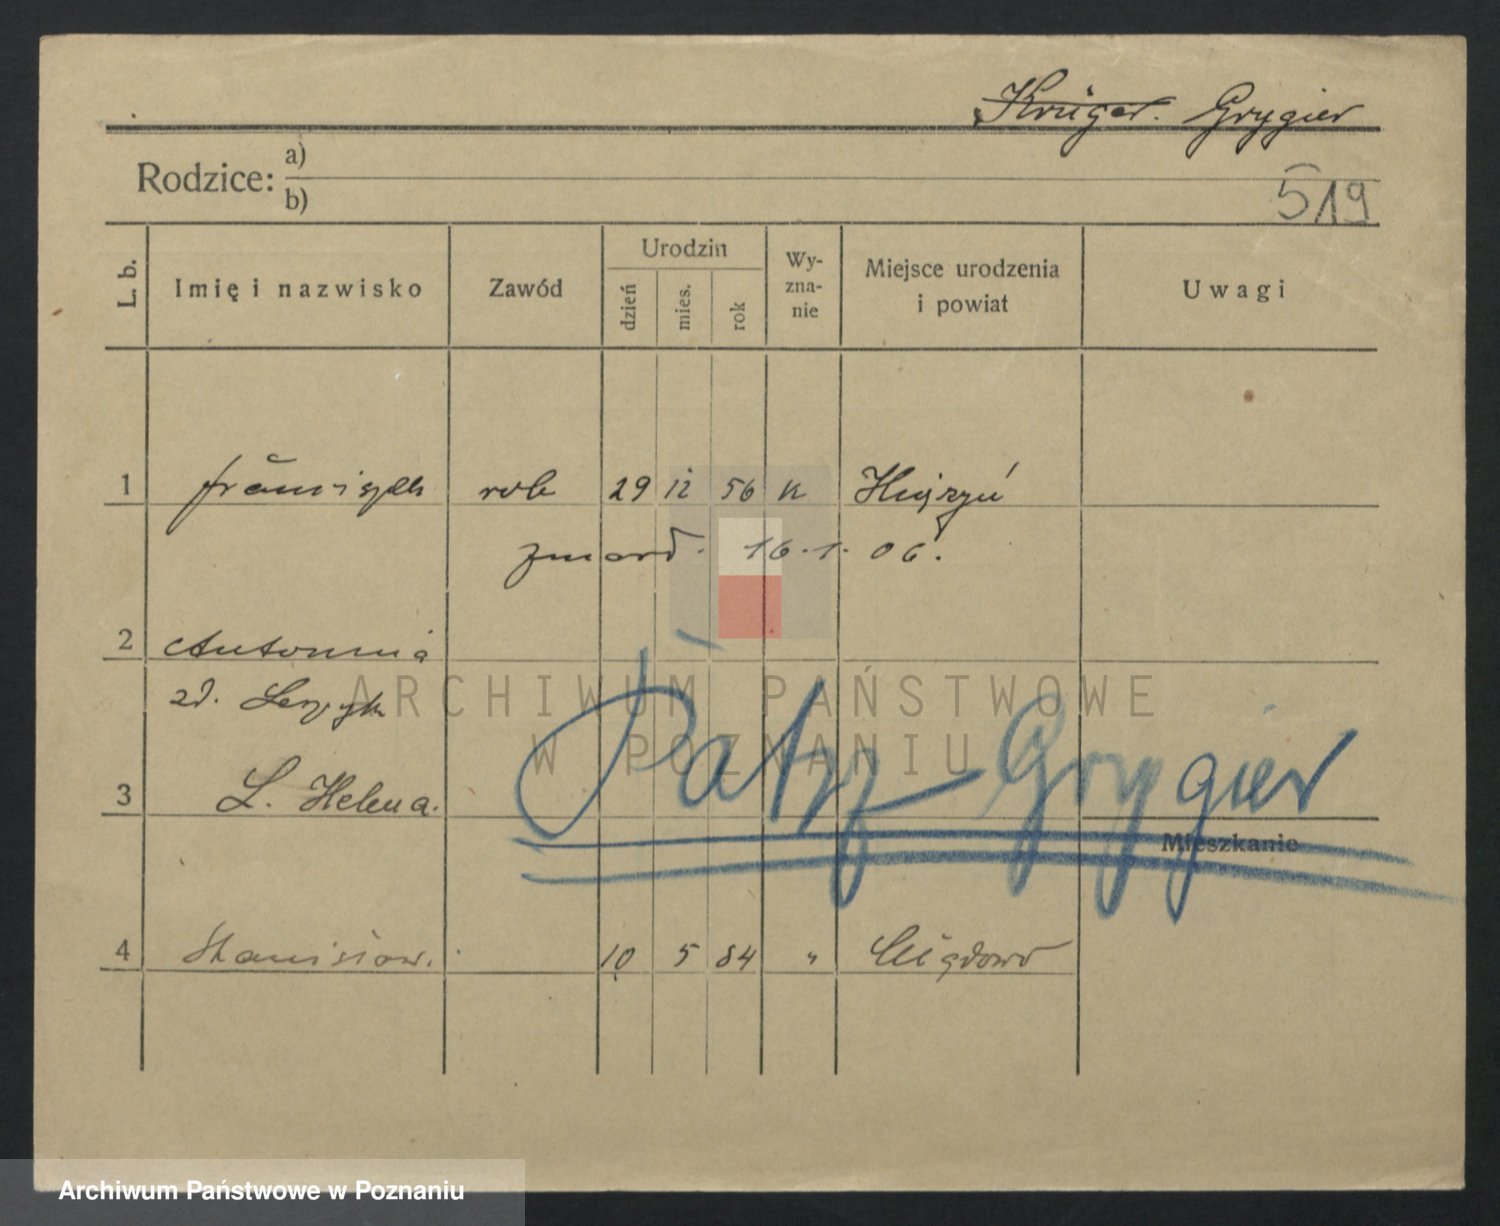 Krüger. Grygier
Rodzice: a)
b)
519
L. b.
Imię i nazwisko
Zawód
Urodzin
dzień
mies.
rok
Wy-
zna-
nie
Miejsce urodzenia
i powiat
Uwagi
1 Franciszek rob 29 12 56 k
zmarł. 16.1.06.
2 Antonina
zd.
3 L. Helena.
Patrz Grygier
Mieszkanie
4 Stanisław. 10 5 84 "
ARCHIWUM PAŃSTWOWE
W POZNANIU
Archiwum Państwowe w Poznaniu